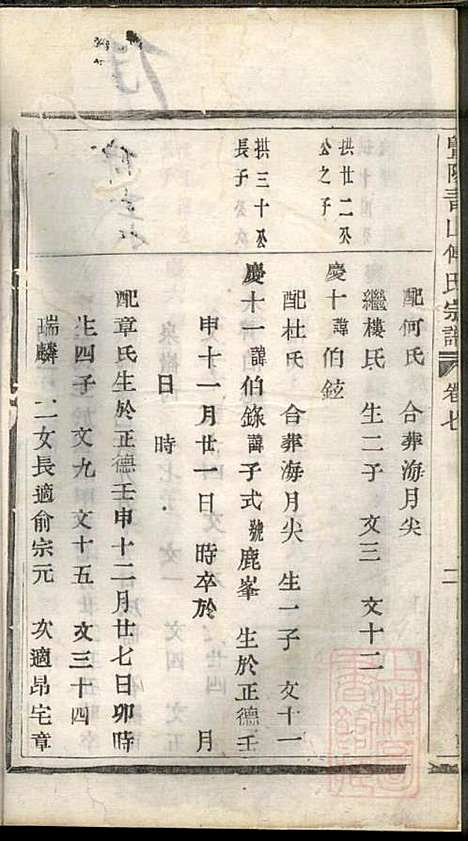 暨陽青山傅氏宗譜 卷七 二
配何氏 合葬海月尖
繼樓氏 生二子 文三 文十二
拱廿二公
公之子
慶十諱伯鉉
配杜氏 合葬海月尖 生一子 文十一
拱三十公
長子
慶十一諱伯錄諱子式號鹿峯 生於正德壬
申十一月廿一日 時卒於 月
日 時
配章氏生於正德壬申十二月廿七日卯時
生四子 文九 文十五 文三十四
瑞麟 二女長適俞宗元 次適昂宅章